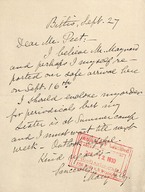 Sept. 27
Dear Mr. Post -
I believe Mr. Maynard
and perhaps I myself re-
ported our safe arrival here
on Sept 16th
I should enclose my order
for periodicals but my
sister is at Summer camp
and I must wait till next
week -
Kind regards
Sincerely